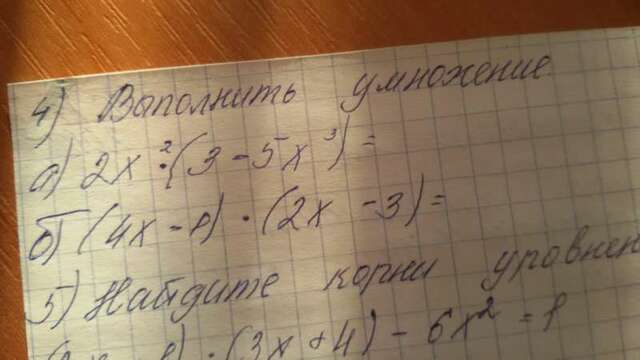 4) Выполнить умножение.
а) 2x²·(3-5x³)=
б) (4x-1)·(2x-3)=
5) Найдите корни уровнен
·(3x+4)-6x²=1